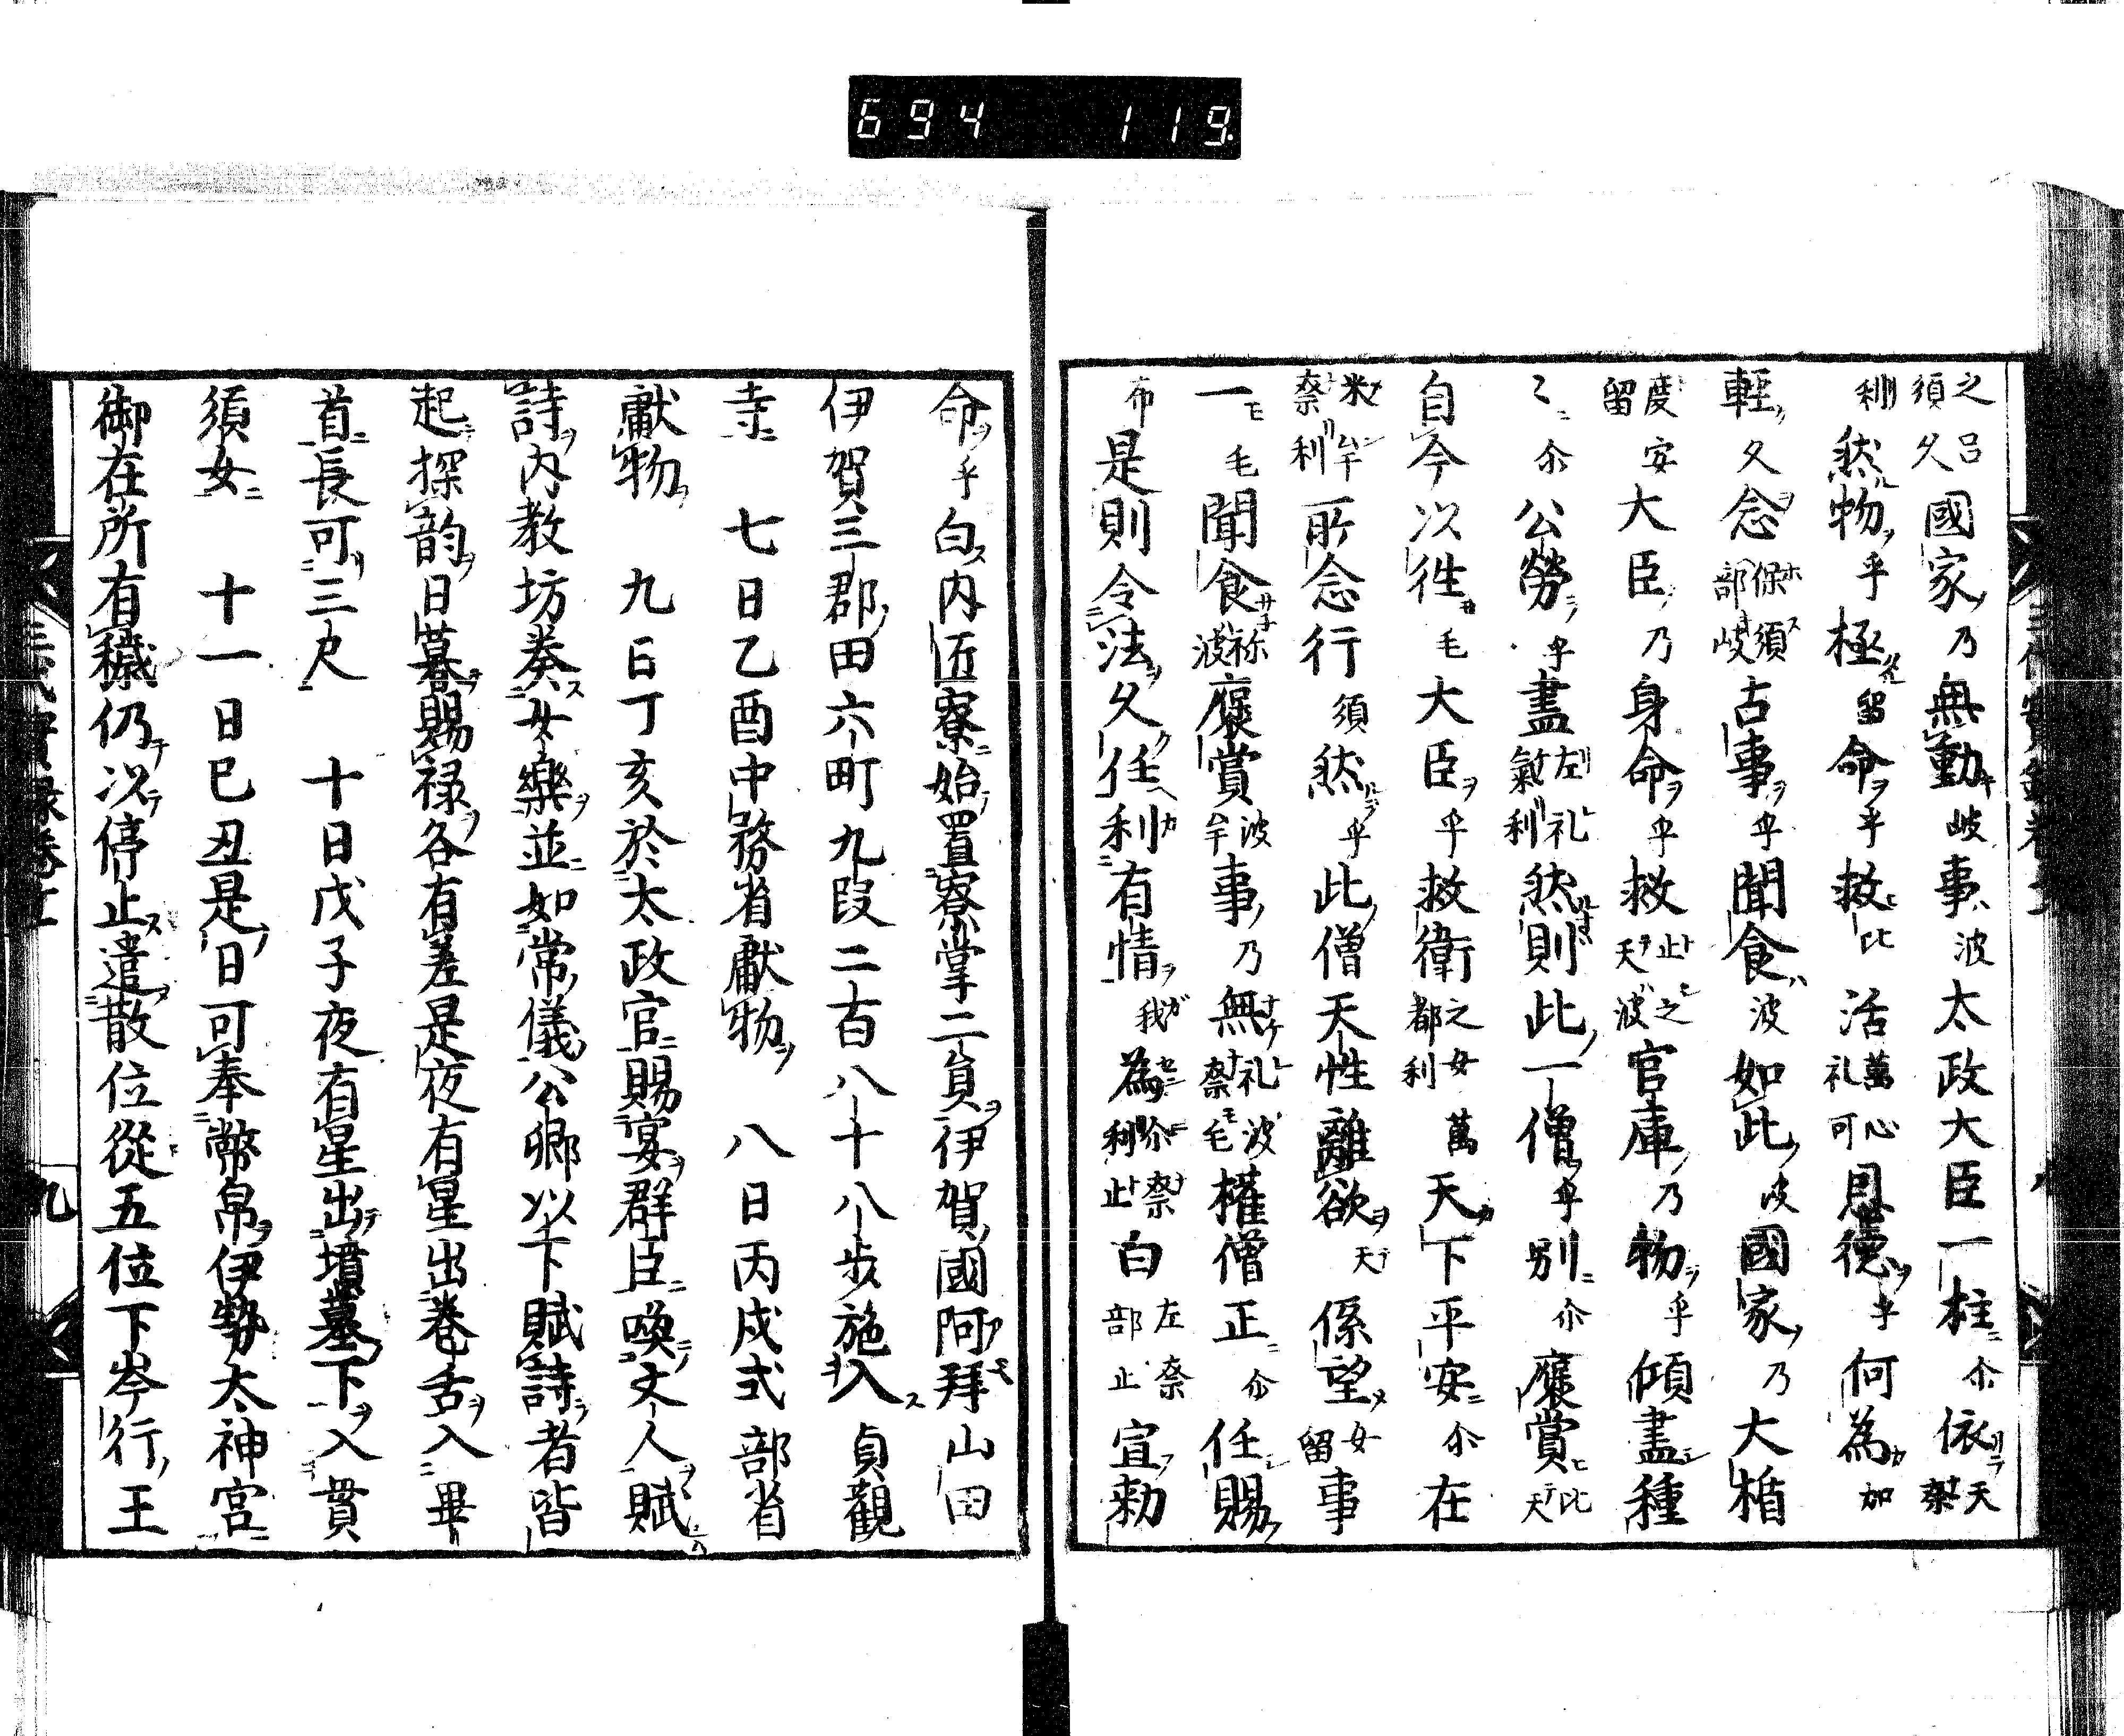 694 119
之須呂久國家乃無動岐事波太政大臣一柱尒依天奈
利然物乎極留命乎救比活萬礼心可恩德乎何為加
輕久念保須部岐古事乎聞食波如此波國家乃大楯
度留安大臣乃身命乎救止天之波官庫乃物乎傾盡種
〻尒公勞乎盡左氣礼利然則此一僧乎別尒襃賞比天
自今以徃毛大臣乎救衛之都女利萬天下平安尒在
米奈牟利所念行須然乎此僧天性離欲天係望女留事
一毛聞食祢波襃賞波牟事乃無礼奈波毛權僧正尒任賜
布是則令法久任利有情我為尒利奈止白左部奈止宣勅
命乎白內匠寮始置寮掌二負伊賀國阿拜山田
伊賀三郡田六町九段二百八十八步施入貞觀
寺 七日乙酉中務省獻物 八日丙戌式部省
獻物 九日丁亥於太政官賜宴群臣喚文人賦
詩內教坊奏女樂並如常儀公卿以下賦詩者皆
起探韵日暮賜祿各有差是夜有星出卷舌入畢
首長可三尺 十日戊子夜有星出墳墓下入貫
須女 十一日己丑是日可奉幣帛伊勢太神宮
御在所有穢仍以停止遣散位從五位下岑行王
三代實錄卷
九